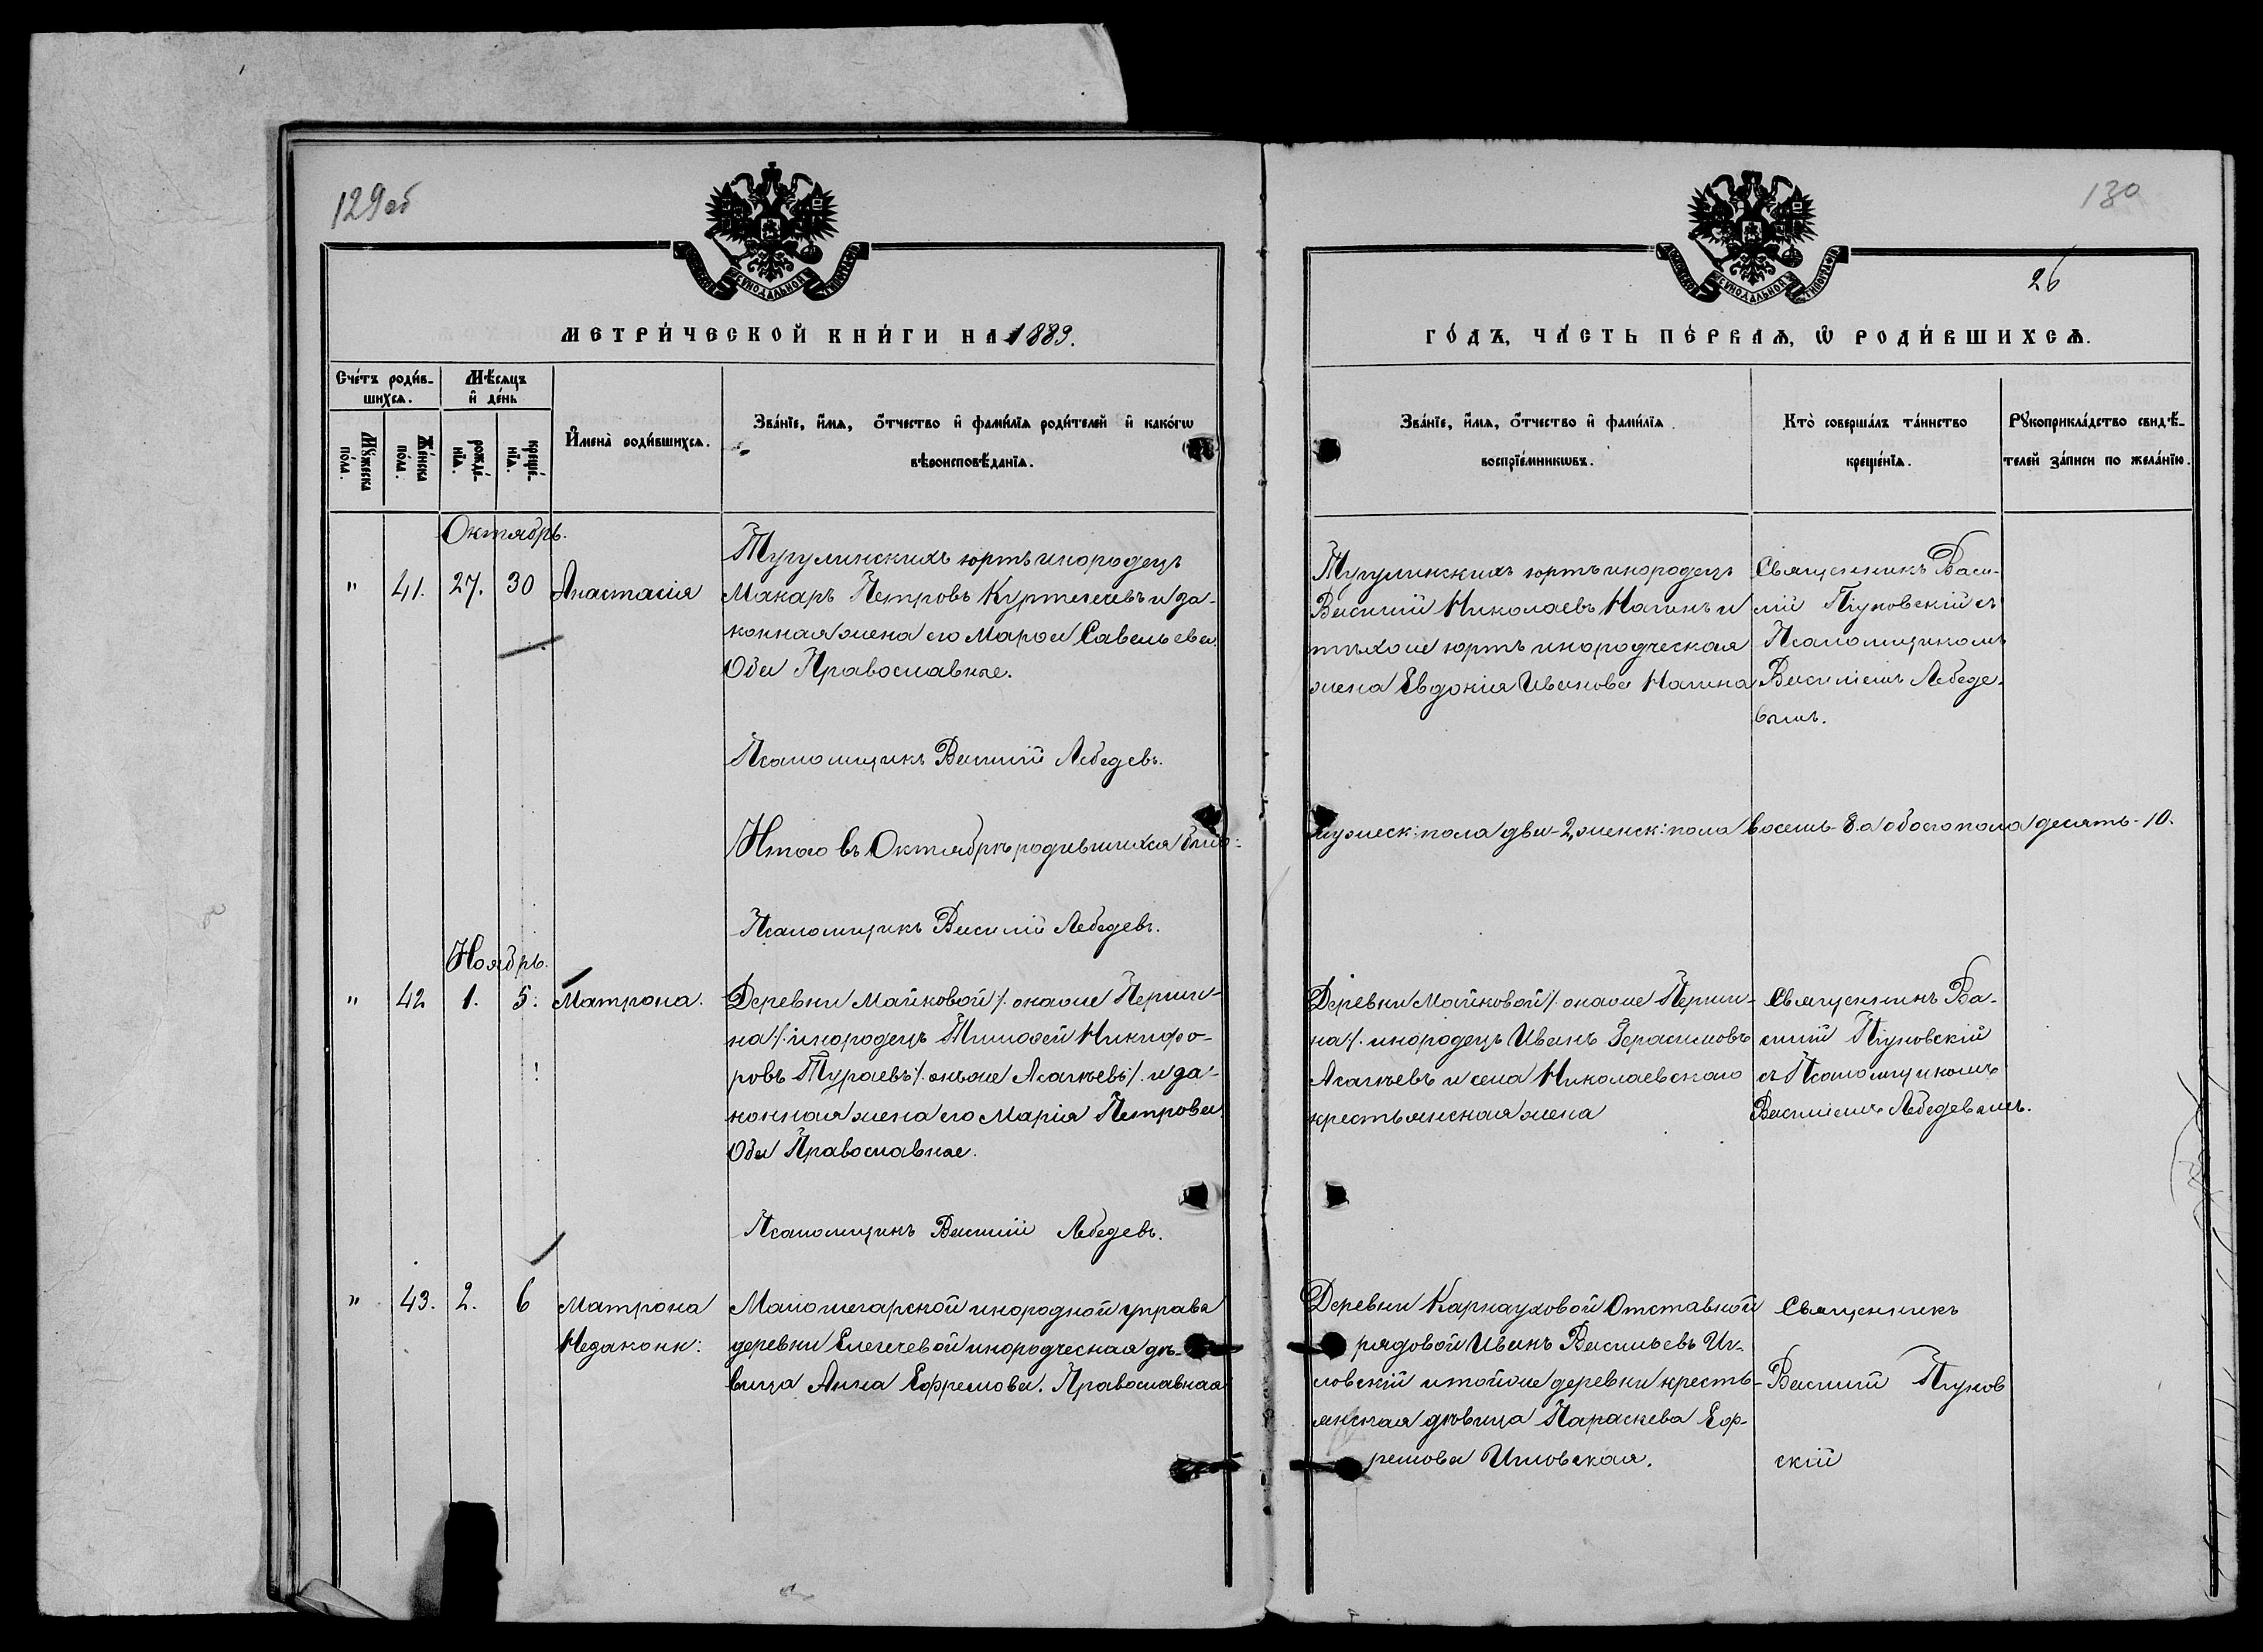 129об
130
26
МЕТРИ́ЧЕСКОЙ КНИ́ГИ НА 1889.
ГО́ДЪ, ЧА́СТЬ ПЕ́РВАѦ, Ѡ҆ РОДИ́ВШИХСѦ.
Сче́тъ роди́в-
шихсѧ.
Мѣ́сѧцъ
и҆ де́нь
Мꙋ́жеска
по́ла.
Же́нска
по́ла.
рожде́-
нїѧ.
креще́-
нїѧ.
И҆мена̀ роди́вшихсѧ.
Зва́нїе, и҆́мѧ, ѻ҆́тчество и҆ фами́лїѧ роди́телей и҆ како́гѡ
вѣроисповѣ́данїѧ.
Зва́нїе, и҆́мѧ, ѻ҆́тчество и҆ фами́лїѧ
воспрїе́мникѡвъ.
Кто̀ соверша́лъ та́инство
креще́нїѧ.
Рꙋкоприкла́дство свидѣ́-
телей за́писи по жела́нїю.
Октябрь.
" 41. 27. 30 Анастасія
Тугулинскихъ юртъ инородецъ
Макаръ Петровъ Куртегечевъ и за-
конная жена его Марѳа Савельева.
Оба Православные.
Тугулинскихъ юртъ инородецъ
Василій Николаевъ Нагинъ и
тѣхже юртъ инородческая
жена Евдокія Иванова Нагина
Священникъ Васи-
лій Пуковскій съ
Псаломщикомъ
Василіемъ Лебеде-
вымъ.
Псаломщикъ Василій Лебедевъ.
Итого въ Октябрѣ родившихся было:
мужеск: пола два-2, женск: пола восемь-8. а обоего пола десять-10.
Псаломщикъ Василій Лебедевъ.
Ноябрь.
" 42 1. 5. Матрона.
Деревни Майковой /. онаже Перши-
на /. инородецъ Тимоѳей Никифо-
ровъ Тураевъ /. онъже Асагѣевъ /. и за-
конная жена его Марія Петрова.
Оба Православные.
Деревни Майковой /. онаже Перши-
на /. инородецъ Иванъ Герасимовъ
Асагѣевъ и села Николаевскаго
крестьянская жена
Священникъ Ва-
силій Пуковскій
съ Псаломщикомъ
Василіемъ Лебедевымъ.
Псаломщикъ Василій Лебедевъ.
" 43. 2. 6 Матрона
Незаконн:
инородной управы
деревни Елегечевой инородческая дѣ-
вица Анна Ефремова. Православная
Деревни Карнауховой Отставной
рядовой Иванъ Васильевъ Иг-
ловскій и тойже деревни кресть-
янская дѣвица Параскева Еф-
ремова Игловская.
Священникъ
Василій Пуков
скій